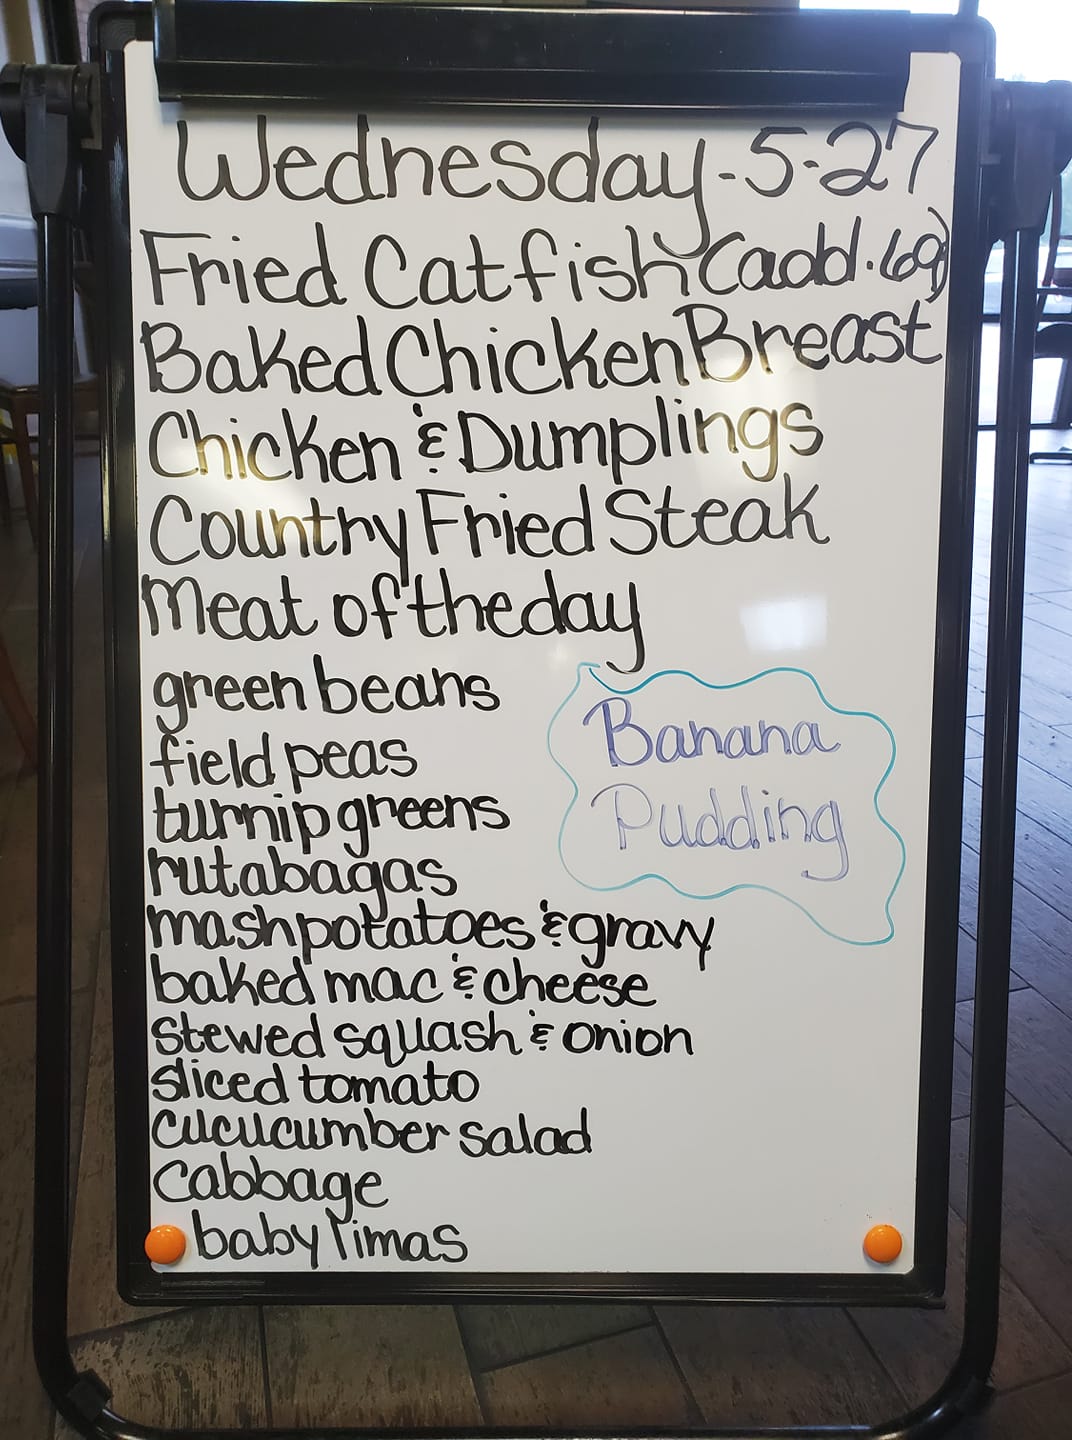 Wednesday - 5-27
Fried Catfish (add .69)
Baked Chicken Breast
Chicken & Dumplings
Country Fried Steak
Meat of the day
green beans
field peas
turnip greens
rutabagas
mash potatoes & gravy
baked mac & cheese
stewed squash & onion
sliced tomato
cucucumber salad
cabbage
baby limas
Banana
Pudding